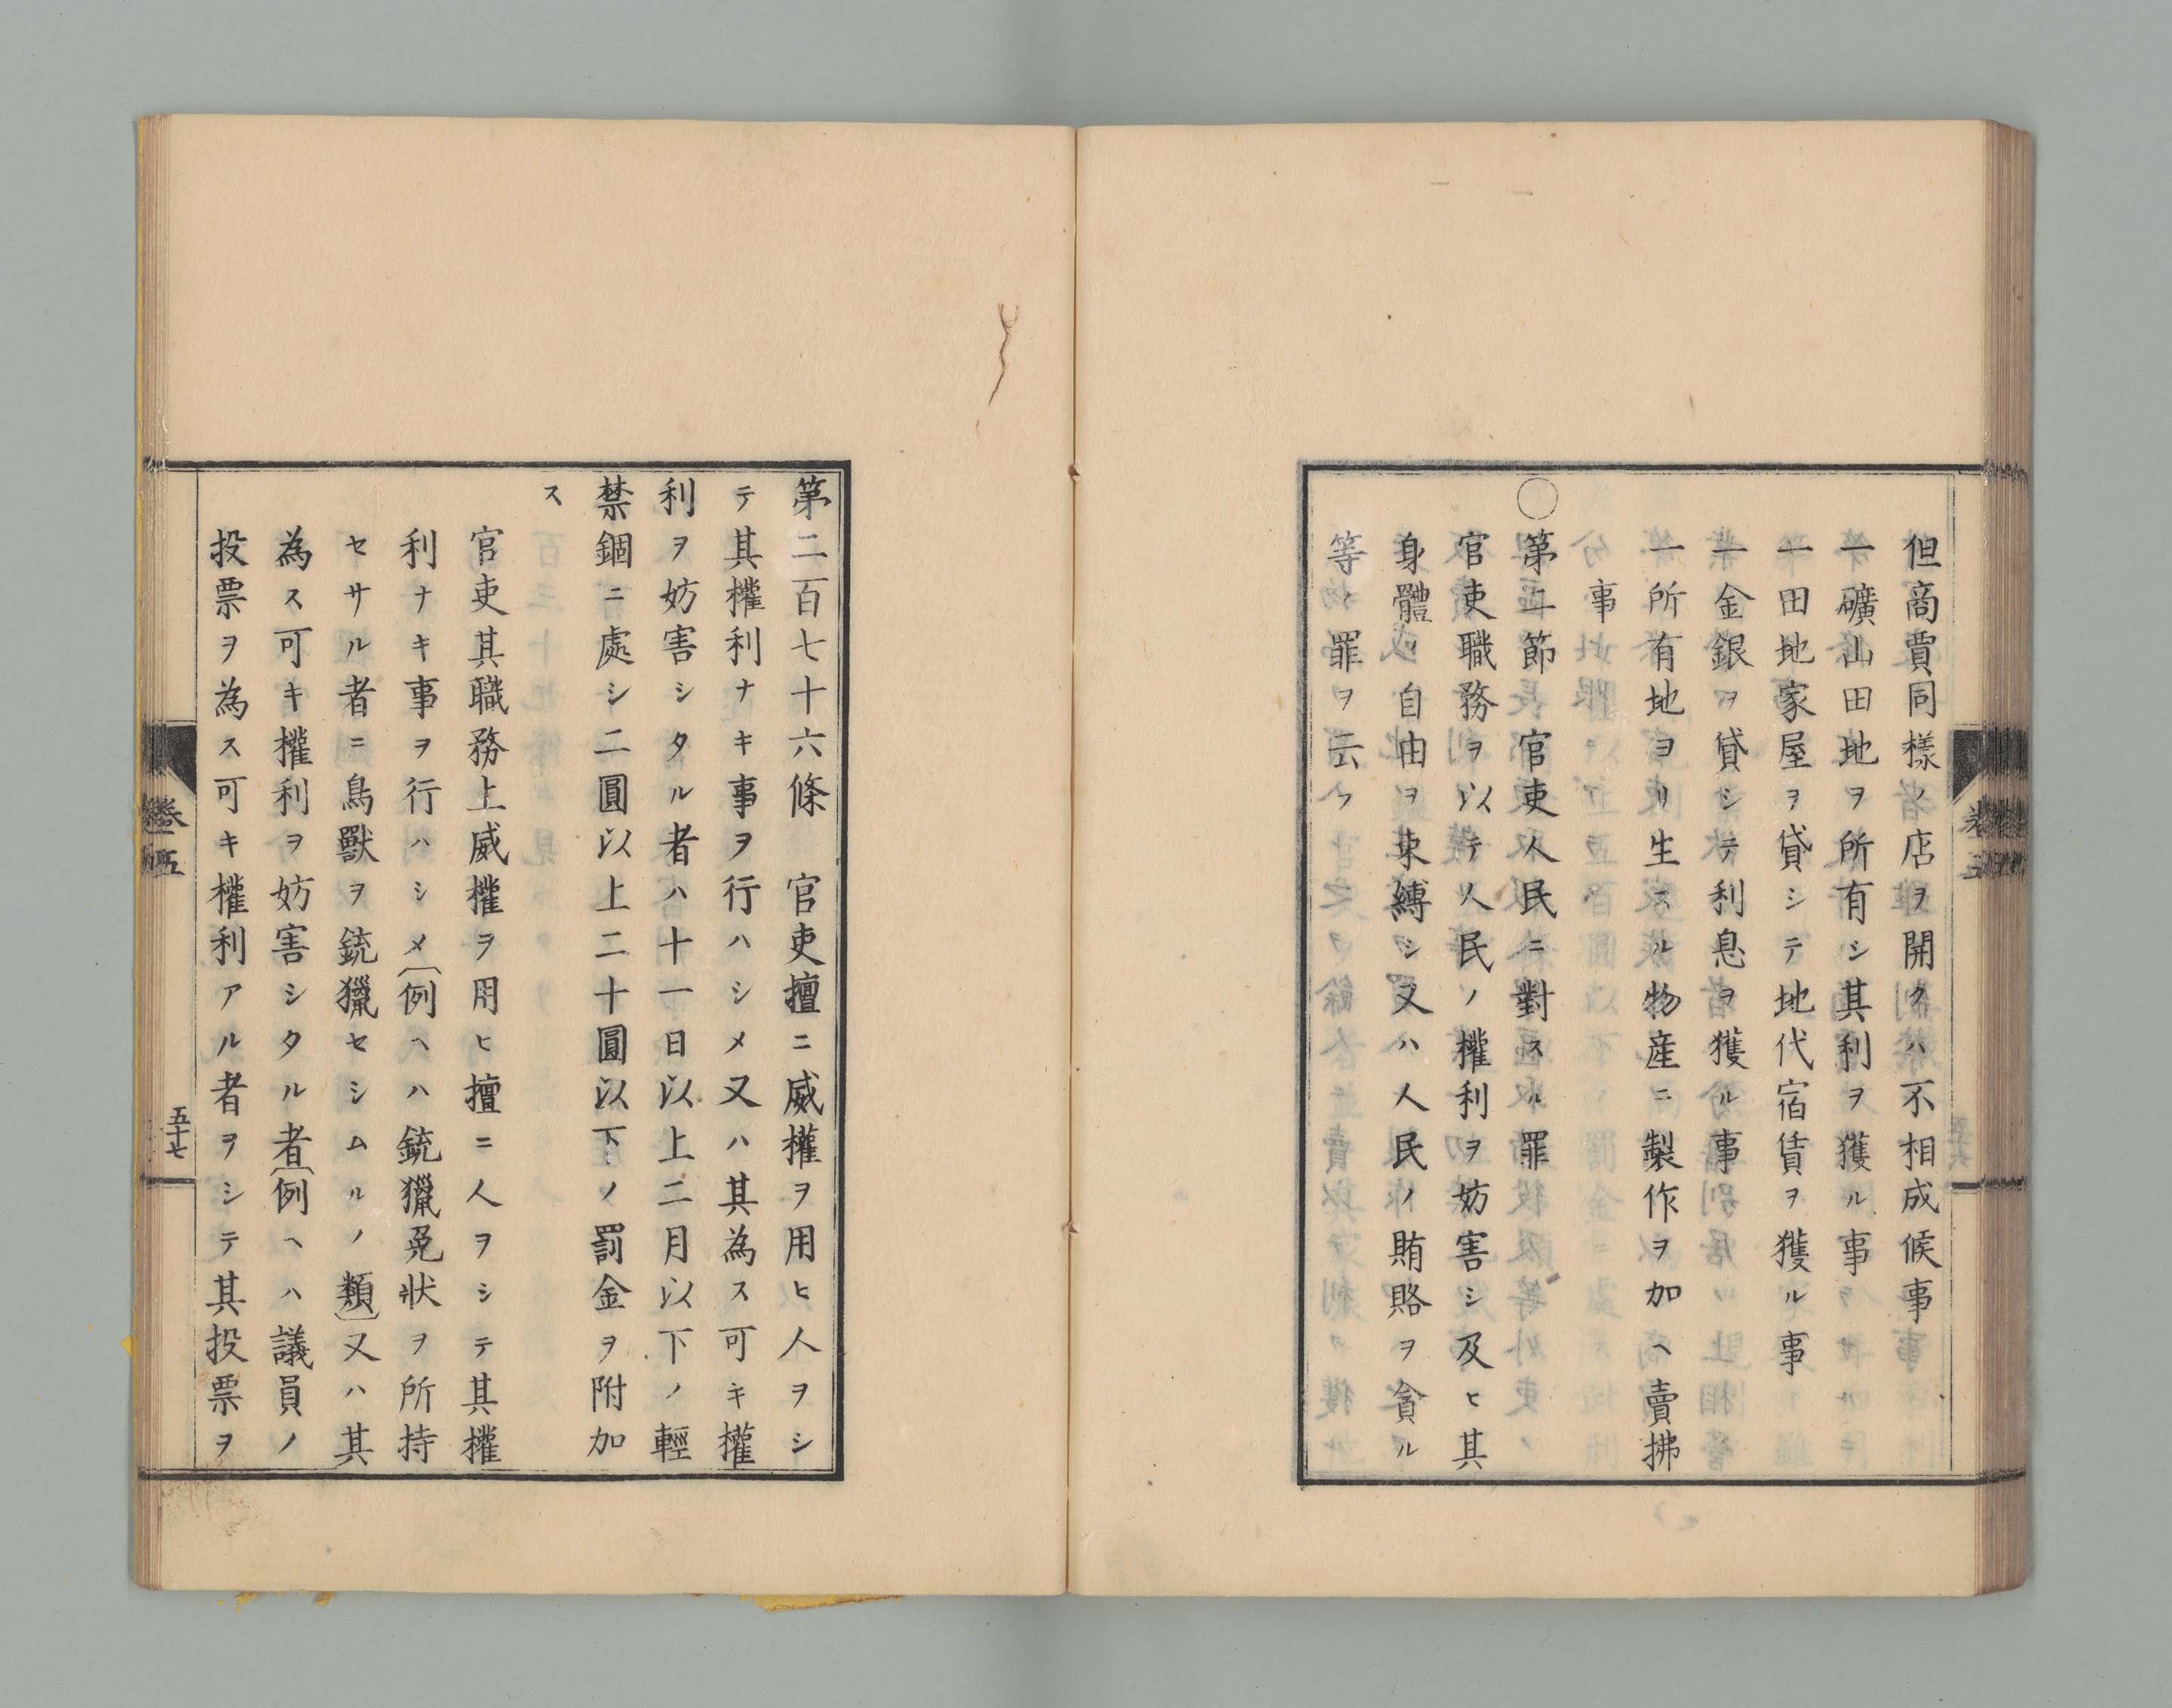 但商賈同樣ノ店ヲ開クハ不相成候事
一礦山田地ヲ所有シ其利ヲ獲ル事
一田地家屋ヲ貸シテ地代宿賃ヲ獲ル事
一金銀ヲ貸シテ利息ヲ獲ル事
一所有地ヨリ生スル物産ニ製作ヲ加ヘ賣拂
事
○第二節 官吏人民ニ對スル罪
官吏職務ヲ以テ人民ノ權利ヲ妨害シ及ヒ其
身體ノ自由ヲ束縛シ又ハ人民ノ賄賂ヲ貪ル
等ノ罪ヲ云フ
卷五
第二百七十六條 官吏擅ニ威權ヲ用ヒ人ヲシ
テ其權利ナキ事ヲ行ハシメ又ハ其為ス可キ權
利ヲ妨害シタル者ハ十一日以上二月以下ノ輕
禁錮ニ處シ二圓以上二十圓以下ノ罰金ヲ附加
ス
官吏其職務上威權ヲ用ヒ擅ニ人ヲシテ其權
利ナキ事ヲ行ハシメ〔例ヘハ銃獵免狀ヲ所持
セサル者ニ鳥獸ヲ銃獵セシムルノ類〕又ハ其
為ス可キ權利ヲ妨害シタル者〔例ヘハ議員ノ
投票ヲ為ス可キ權利アル者ヲシテ其投票ヲ
卷五
五十七